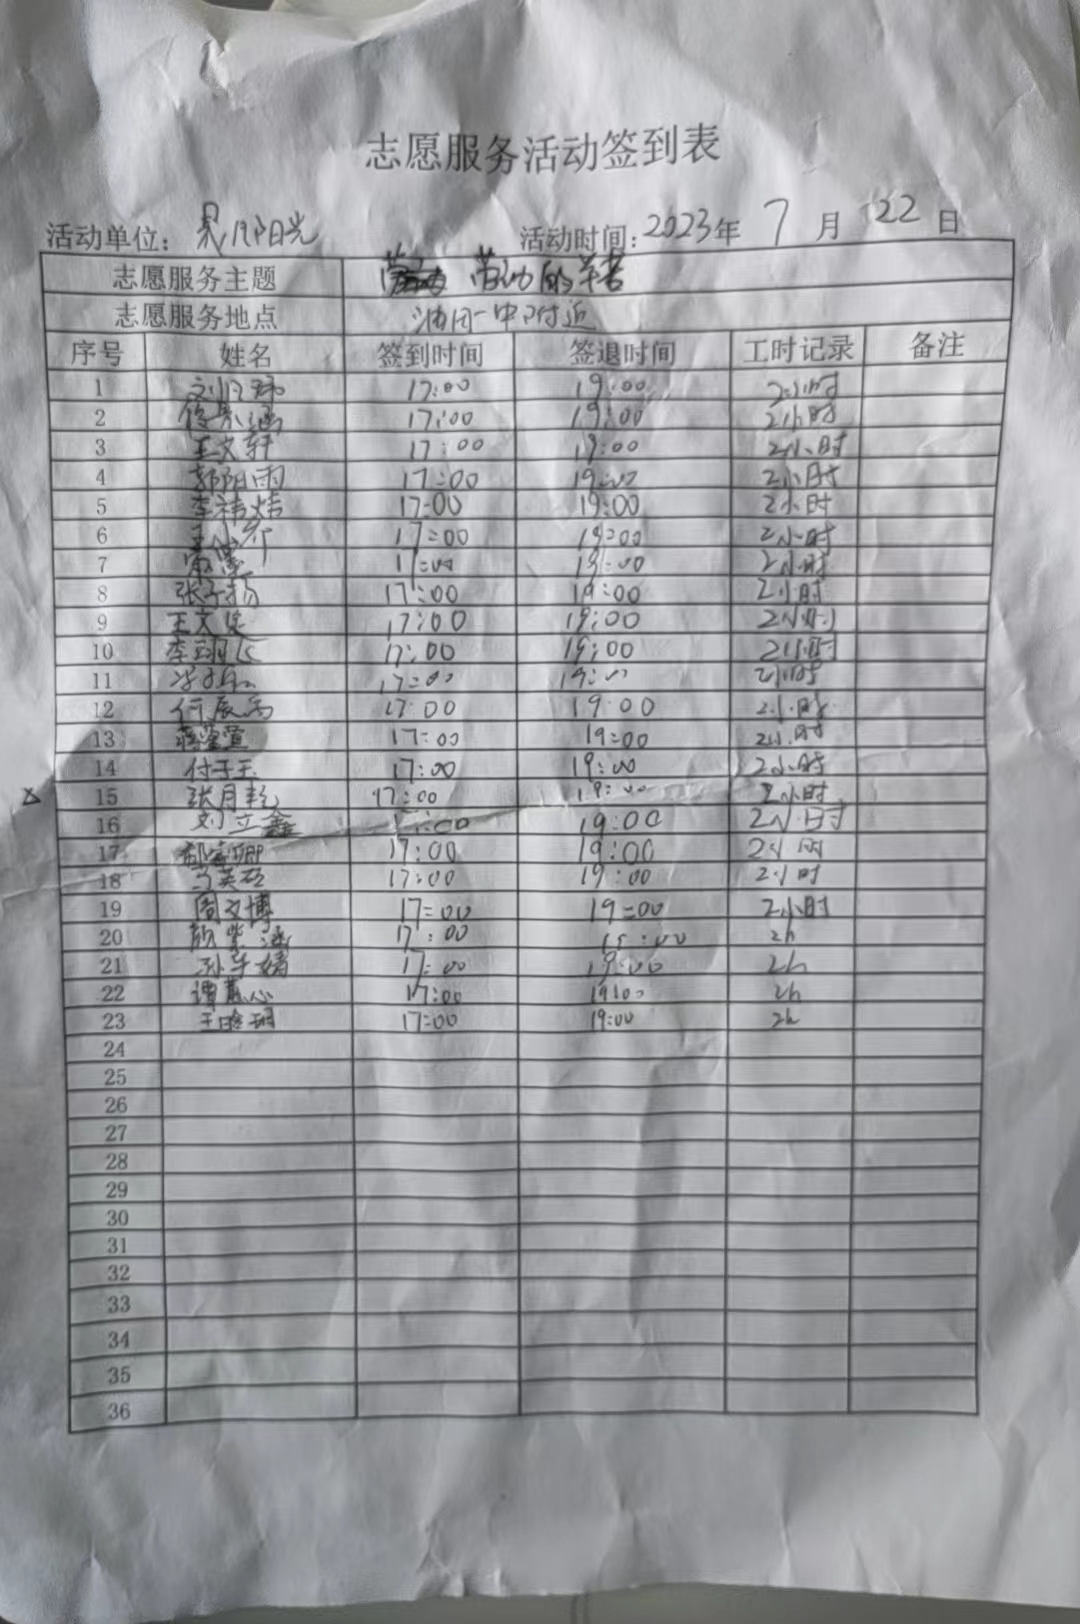 志愿服务活动签到表
活动单位: 阳光 活动时间: 2023年 7 月 22 日
志愿服务主题 劳动的
志愿服务地点 油田一中附近
序号 姓名 签到时间 签退时间 工时记录 备注
1 17:00 19:00 2小时
2 17:00 19:00 2小时
3 王文轩 17:00 19:00 2小时
4 郭阳雨 17:00 19:00 2小时
5 李祎炜 17:00 19:00 2小时
6 17:00 19:00 2小时
7 17:00 19:00 2小时
8 张子扬 17:00 19:00 2小时
9 王文 17:00 19:00 2小时
10 李翊飞 17:00 19:00 2小时
11 17:00 19:00 2小时
12 17:00 19:00 2小时
13 17:00 19:00 2小时
14 付子玉 17:00 19:00 2小时
15 张月乾 17:00 19:00 2小时
16 刘立鑫 17:00 19:00 2小时
17 17:00 19:00 2小时
18 马英硕 17:00 19:00 2小时
19 周文博 17:00 19:00 2小时
20 颜紫涵 17:00 19:00 2h
21 孙子婧 17:00 19:00 2h
22 谭蕙心 17:00 19:00 2h
23 王晗玥 17:00 19:00 2h
24
25
26
27
28
29
30
31
32
33
34
35
36